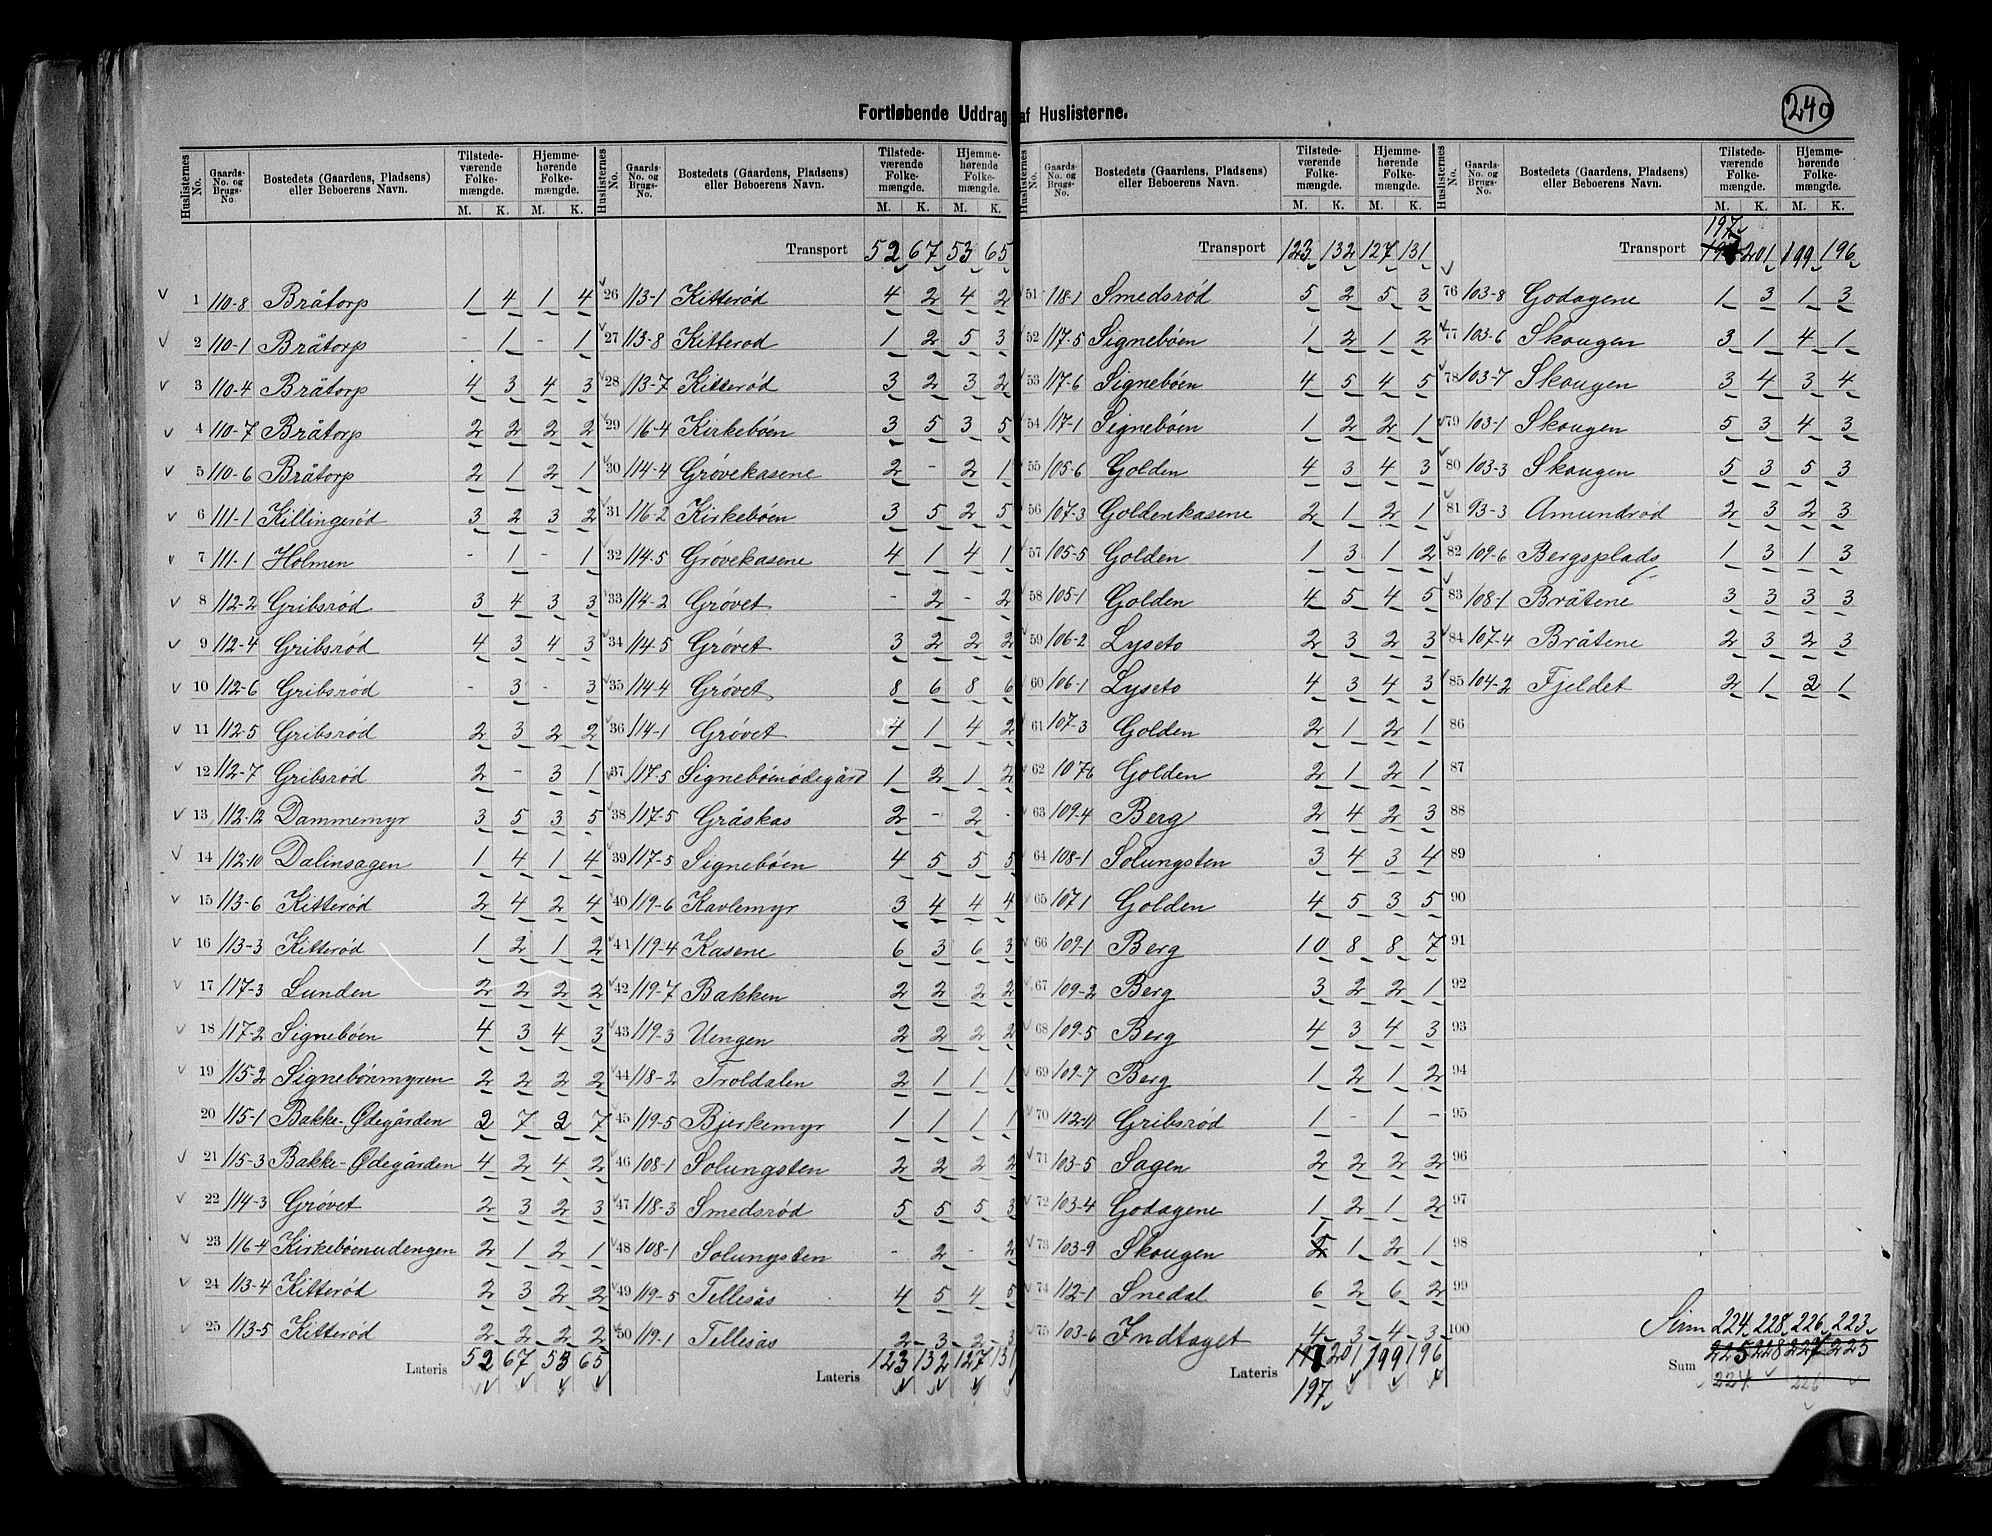 240
Fortløbende Uddrag af Huslisterne.
Huslisternes No. Gaards-No. og Brugs-No. Bostedets (Gaardens, Pladsens) eller Beboerens Navn. Tilstedeværende Folkemængde. M. K. Hjemmehørende Folkemængde. M. K.
1 110-8 Bråtorp 1 4 1 4
2 110-1 Bråtorp - 1 - 1
3 110-4 Bråtorp 4 3 4 3
4 110-7 Bråtorp 2 2 2 2
5 110-6 Bråtorp 2 1 2 1
6 111-1 Killingerød 3 2 3 2
7 111-1 Holmen - 1 - 1
8 112-2 Gribsrød 3 4 3 3
9 112-4 Gribsrød 4 3 4 3
10 112-6 Gribsrød - 3 - 3
11 112-5 Gribsrød 2 3 2 2
12 112-7 Gribsrød 2 - 3 1
13 112-12 Dammemyr 3 5 3 5
14 112-10 Dalinsagen 1 4 1 4
15 113-6 Kitterød 2 4 2 4
16 113-3 Kitterød 1 2 1 2
17 117-3 Lunden 2 2 2 2
18 117-2 Signebøen 4 3 4 3
19 115-2 Signebønmyren 2 2 2 2
20 115-1 Bakke-Ødegården 2 7 2 7
21 115-3 Bakke-Ødegården 4 2 4 2
22 114-3 Grøvet 2 3 2 3
23 116-4 Kirkebøenudengen 2 1 2 1
24 113-4 Kitterød 2 3 2 2
25 113-5 Kitterød 2 2 2 2
Lateris 52 67 53 65
Huslisternes No. Gaards-No. og Brugs-No. Bostedets (Gaardens, Pladsens) eller Beboerens Navn. Tilstedeværende Folkemængde. M. K. Hjemmehørende Folkemængde. M. K.
Transport 52 67 53 65
26 113-1 Kitterød 4 2 4 2
27 113-8 Kitterød 1 2 5 3
28 113-7 Kitterød 3 2 3 2
29 116-4 Kirkebøen 3 5 3 5
30 114-4 Grøvekasene 2 - 2 1
31 116-2 Kirkebøen 3 5 2 5
32 114-5 Grøvekasene 4 1 4 1
33 114-2 Grøvet - 2 - 2
34 114-5 Grøvet 3 2 2 2
35 114-4 Grøvet 8 6 8 6
36 114-1 Grøvet 4 1 4 2
37 117-5 Signebøenødegård 1 2 1 2
38 117-5 Gråskas 2 - 2 -
39 117-5 Signebøen 4 5 5 5
40 119-6 Kavlemyr 3 4 4 4
41 119-4 Kasene 6 3 6 3
42 119-7 Bakken 2 2 2 2
43 119-3 Uengen 2 2 2 2
44 118-2 Troldalen 2 1 1 1
45 119-5 Bjerkemyr 1 1 1 1
46 108-1 Solungsten 2 2 2 2
47 118-3 Smedsrød 5 5 5 3
48 108-1 Solungsten - 2 - 2
49 119-5 Tellesås 4 5 4 5
50 119-1 Tellesås 2 3 2 3
Lateris 123 132 127 131
Huslisternes No. Gaards-No. og Brugs-No. Bostedets (Gaardens, Pladsens) eller Beboerens Navn. Tilstedeværende Folkemængde. M. K. Hjemmehørende Folkemængde. M. K.
Transport 123 132 127 131
51 118-1 Smedsrød 5 2 5 3
52 117-5 Signebøen 1 2 1 2
53 117-6 Signebøen 4 5 4 5
54 117-1 Signebøen 1 2 2 1
55 105-6 Golden 4 3 4 3
56 107-3 Goldenkasene 2 1 2 1
57 105-5 Golden 1 3 1 2
58 105-1 Golden 4 5 4 5
59 106-2 Lyseto 2 3 2 3
60 106-1 Lyseto 4 3 4 3
61 107-3 Golden 2 1 2 1
62 1076 Golden 2 1 2 1
63 109-4 Berg 2 4 2 3
64 108-1 Solungsten 3 4 3 4
65 107-1 Golden 4 5 3 5
66 109-1 Berg 10 8 8 7
67 109-2 Berg 3 2 2 1
68 109-5 Berg 4 3 4 3
69 109-7 Berg 1 2 1 2
70 112-11 Gribsrød 1 - 1 -
71 103-5 Sagen 2 2 2 2
72 103-4 Godagene 1 2 1 2
73 103-9 Skougen 1 2 1 2 1
74 112-1 Snedal 6 2 6 2
75 103-6 Indtaget 4 3 4 3
Lateris 201 199 196
197
Huslisternes No. Gaards-No. og Brugs-No. Bostedets (Gaardens, Pladsens) eller Beboerens Navn. Tilstedeværende Folkemængde. M. K. Hjemmehørende Folkemængde. M. K.
197
Transport 201 199 196
76 103-8 Godagene 1 3 1 3
77 103-6 Skougen 3 1 4 1
78 103-7 Skougen 3 4 3 4
79 103-1 Skougen 5 3 4 3
80 103-3 Skougen 5 3 5 3
81 93-3 Amundrød 2 3 2 3
82 109-6 Bergsplads 1 3 1 3
83 108-1 Bråtene 3 3 3 3
84 107-4 Bråtene 2 3 2 3
85 104-2 Fjeldet 2 1 2 1
86
87
88
89
90
91
92
93
94
95
96
97
98
99
100
Sum 224 228 226 223
Sum 225 228 227 223
224 226